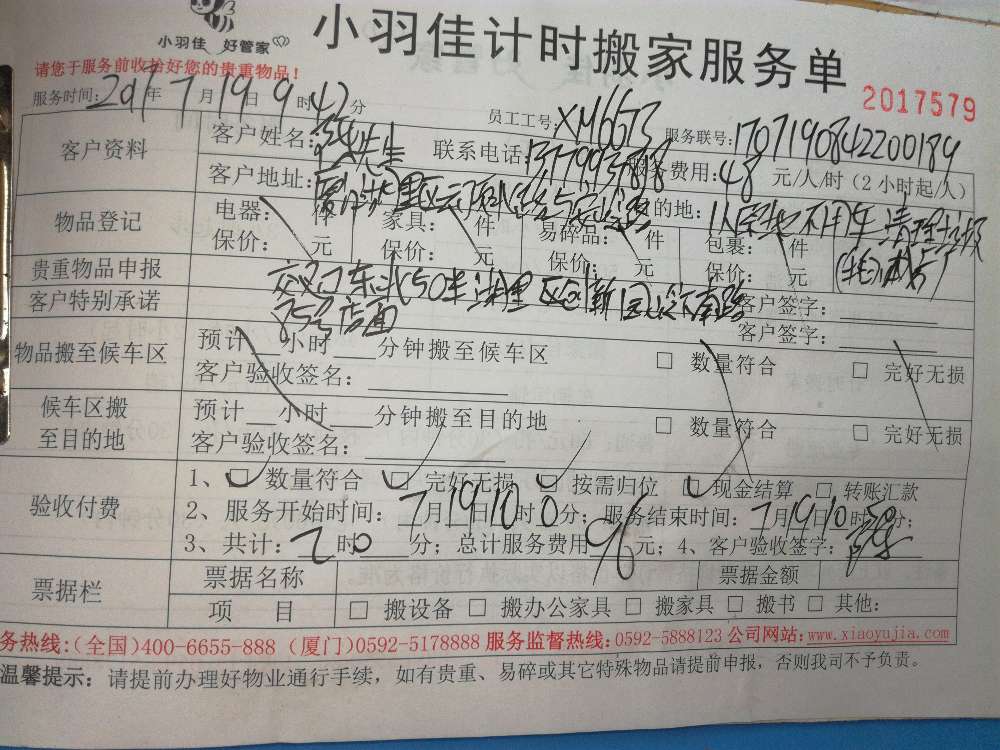 小羽佳 好管家
小羽佳计时搬家服务单
请您于服务前收拾好您的贵重物品！
2017579
服务时间：2017年7月19日9时42分 员工工号：XM6673 服务联号：1707190842200189
客户资料 客户姓名：先生 联系电话： 服务费用：48元/人/时（2小时起/人）
客户地址： 目的地：不用车 清理垃圾
物品登记 电器： 件 家具： 件 易碎品： 件 包裹： 件
保价： 元 保价： 元 保价： 元 保价： 元
贵重物品申报 客户签字：
客户特别承诺 客户签字：
50米 湖里区
店面
物品搬至候车区 预计 小时 分钟搬至候车区 □ 数量符合 □ 完好无损
客户验收签名：
候车区搬至目的地 预计 小时 分钟搬至目的地 □ 数量符合 □ 完好无损
客户验收签名：
验收付费 1、□ 数量符合 □ 完好无损 □ 按需归位 □ 现金结算 □ 转账汇款
2、服务开始时间：7月19日10时0分；服务结束时间：7月19日10时分；
3、共计：2时0分；总计服务费用96元；4、客户验收签字：
票据栏 票据名称 票据金额
项 目 □ 搬设备 □ 搬办公家具 □ 搬家具 □ 搬书 □ 其他：
务热线:(全国)400-6655-888 (厦门)0592-5178888 服务监督热线:0592-5888123 公司网站:www.xiaoyujia.com
温馨提示：请提前办理好物业通行手续，如有贵重、易碎或其它特殊物品请提前申报，否则我司不予负责。